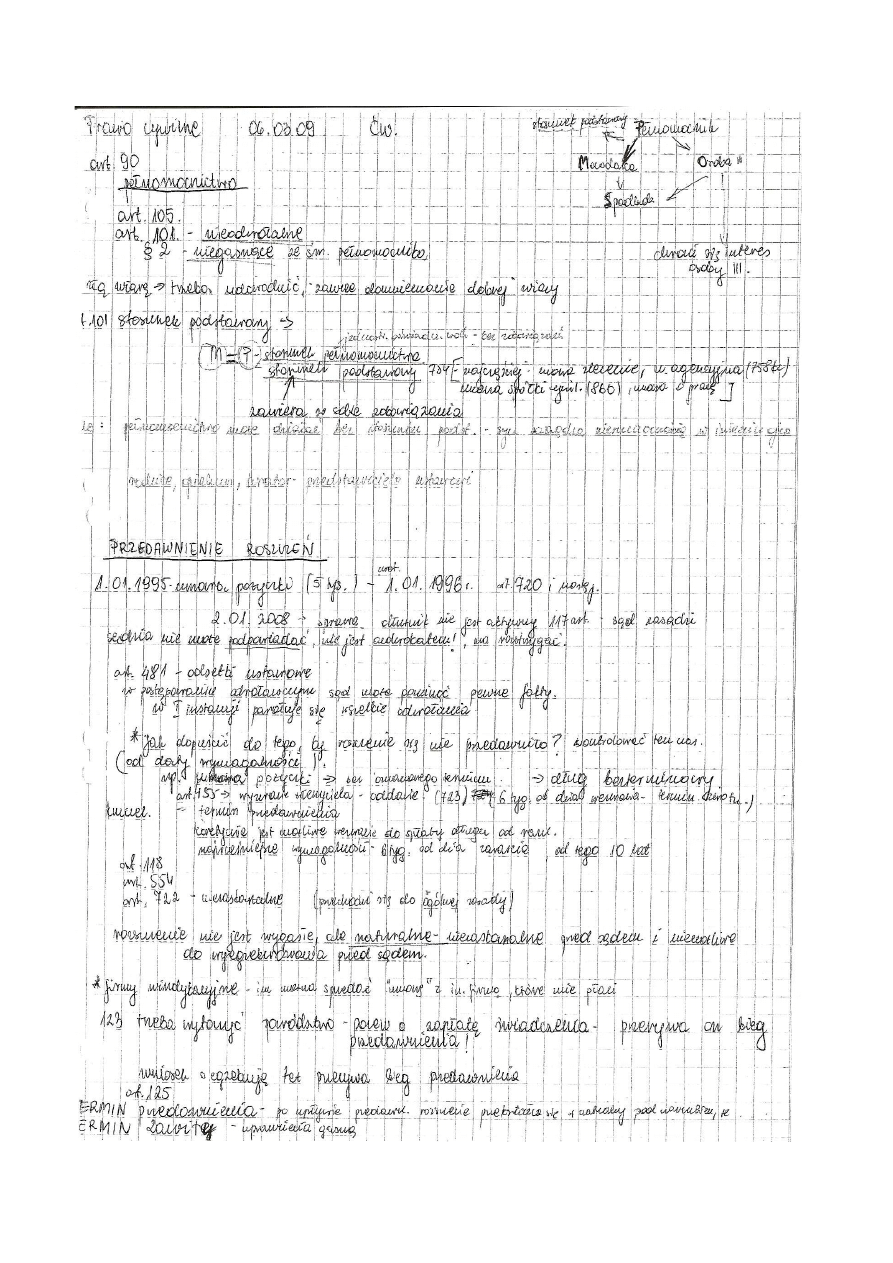 Prawo cywilne 06.03.09 Ćw.
stosunek podstawowy Pełnomocnik
Mocodawca Osoba III
Spadłoda
art. 90
pełnomocnictwo
art. 105.
art. 101. - nieodwołalne
§ 2 - niegasnące ze śm. pełnomocnika,
chroni się interes
osoby III.
złą wiarę → trzeba udowodnić, zawsze domniemanie dobrej wiary
t.101 stosunek podstawowy →
M = P - stosunek pełnomocnictwa
stosunek podstawowy 734 [- najczęściej - umowa zlecenie, u. agencyjna (758kc)
umowa spółki cywil. (860), umowa o pracę ]
zawiera w sobie zobowiązania
pełnomocnictwo może działać bez stosunku podst. -
rodzice, opiekun, kurator - przedstawiciele ustawowi
PRZEDAWNIENIE ROSZCZEŃ
1.01.1995 - umowa pożyczki (5 tys.) - zwrot. 1.01.1996 r. art. 720 i nastę.
2.01.2008 → sprawa, dłużnik nie jest aktywny 117 art. - sąd zasądzi
sędzia nie może podpowiadać, nie jest adwokatem!, ma rozstrzygać.
art. 481 - odsetki ustawowe
w postępowaniu odwoławczym sąd może pominąć pewne fakty.
w I instancji powołuje się wszelkie odwołania
* Jak dopuścić do tego, by roszczenie się nie przedawniło? kontrolować ten czas.
(od daty wymagalności).
np. umowa pożyczki → bez oznaczonego terminu → dług bezterminowy
art. 455 → wezwanie wierzyciela - oddanie (723) 6 tyg. od dnia wezwania - termin zwrotu.)
- termin przedawnienia
teoretycznie jest możliwe wezwanie do spłaty długu od razu.
najwcześniejsze wymagalności - 6 tyg. od dnia zawarcia, od tego 10 lat
art. 118
art. 554
art. 722 - niezastanalne (przechodzi się do ogólnej zasady)
roszczenie nie jest wygasłe, ale naturalne - niezastanalne przed sądem i niemożliwe
do wyegzekwowania przed sądem.
* firmy windykacyjne - im można sprzedać "umowę" z in. firmą, które nie płaci
123 trzeba wytoczyć powództwo - pozew o zapłatę świadczenia - przerywa on bieg
przedawnienia!
wniosek o egzekucję też przerywa bieg przedawnienia
art. 125
ERMIN przedawnienia - po upływie przedawn. roszczenie przekształca się w naturalny pod warunkiem, że
ERMIN zawity - uprawnienia gasną